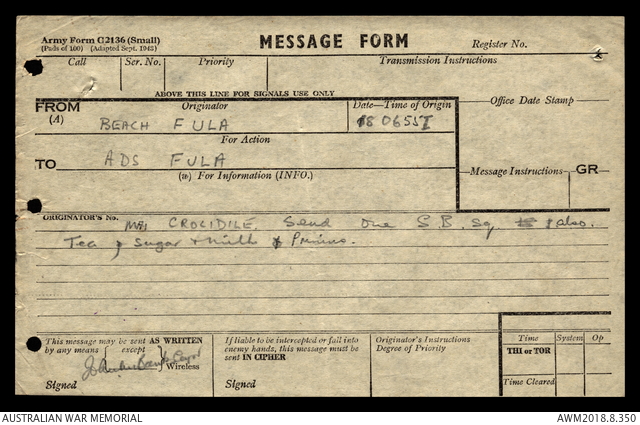 Army Form C2136 (Small)
(Pads of 100) (Adapted Sept. 1943)
MESSAGE FORM
Register No.
Call
Ser. No.
Priority
Transmission Instructions
ABOVE THIS LINE FOR SIGNALS USE ONLY
FROM
(A)
Originator
Date—Time of Origin
Office Date Stamp
BEACH FULA
18 0655I
For Action
TO
ADS FULA
(W) For Information (INFO.)
Message Instructions
GR
ORIGINATOR'S No.
CROCIDILE. Send One S.B. Sq also.
Tea, Sugar + milk & Primus.
This message may be sent AS WRITTEN
by any means
except
Wireless
Signed
If liable to be intercepted or fall into
enemy hands, this message must be
sent IN CIPHER
Signed
Originator's Instructions
Degree of Priority
Time
System
Op
THI or TOR
Time Cleared
AUSTRALIAN WAR MEMORIAL
AWM2018.8.350